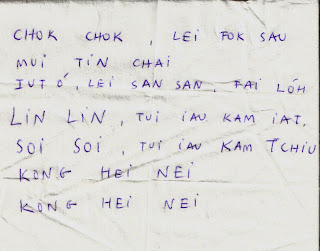 CHOK CHOK , LEI FOK SAU
MUI TIN CHAI
IUT Ó, LEI SAN SAN, FAI LÓH
LIN LIN, TUI IAU KAM IAT,
SOI SOI, TUI IAU KAM T'CHIU
KONG HEI NEI
KONG HEI NEI